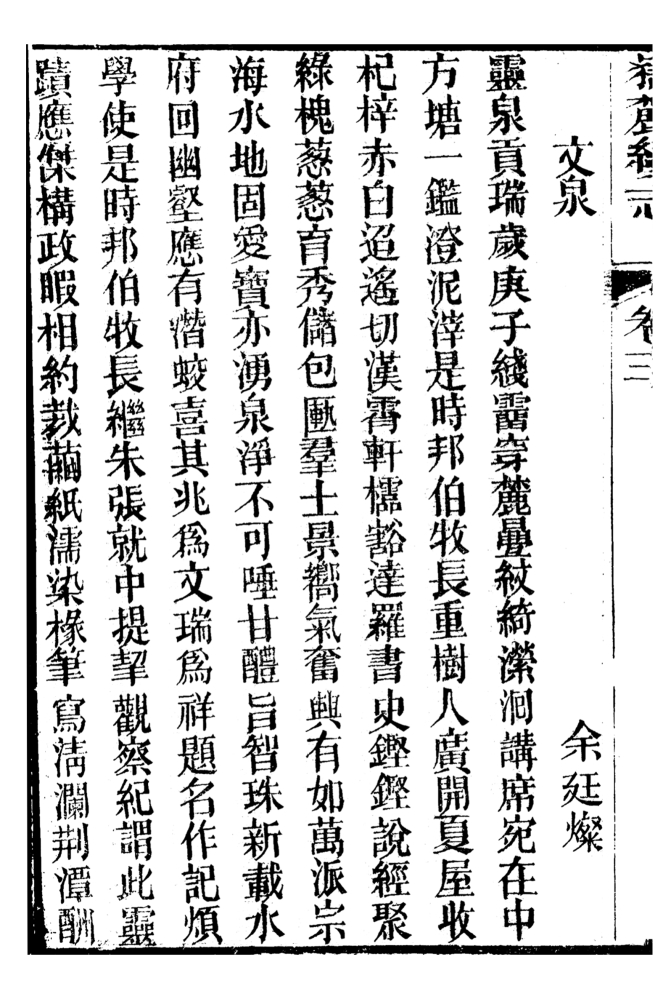 卷三
文泉
余廷燦
靈泉貢瑞歲庚子綫霤穿麓疊紋綺瀠洄講席宛在中
方塘一鑑澄泥滓是時邦伯牧長重樹人廣開夏屋收
杞梓赤白迢遙切漢霄軒櫺豁達羅書史鏗鏗說經聚
綠槐蔥蔥育秀儲包匭羣士景嚮氣奮興有如萬派宗
海水地固愛寶亦湧泉淨不可唾甘醴旨智珠新載水
府回幽壑應有潛蛟喜其兆爲文瑞爲祥題名作記煩
學使是時邦伯牧長繼朱張就中提挈觀察紀謂此靈
蹟應傑構政暇相約裁繭紙濡染椽筆寫淸瀾荆潭酬